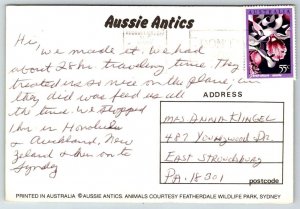 Aussie Antics
AUSTRALIA
55c
Hi,
we made it. We had
about 28 hr traveling time. They
treated us so nice on the plane. 
they did was feed us all
the time. We stopped
1hr in Honolulu
& Auckland, New
Zeland & then on to
Syndey
ADDRESS
MRS ANNA KLINGEL
487 Youngwood Dr.
EAST STROUDSBURG
PA. 18301
postcode
PRINTED IN AUSTRALIA © AUSSIE ANTICS. ANIMALS COURTESY FEATHERDALE WILDLIFE PARK, SYDNEY